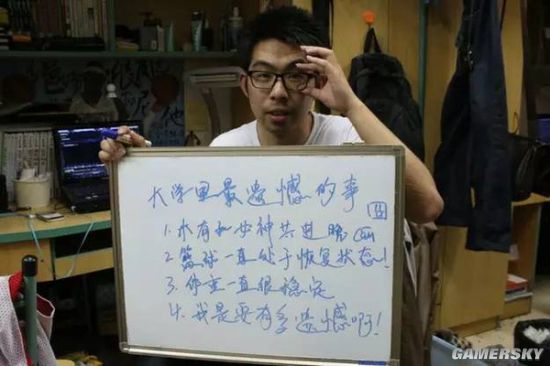 大学里最遗憾的事
1.木有和女神共进晚
2.篮球一直处于恢复状态!
3.体重一直很稳定
4.我是要有多遗憾啊!
GAMERSKY